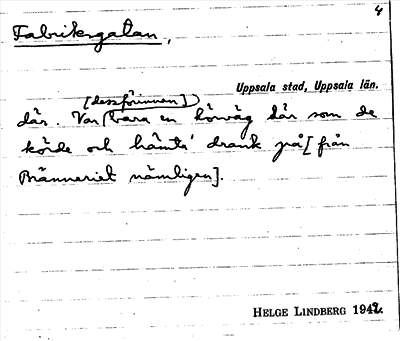 4
Fabriksgatan,
Uppsala stad, Uppsala län.
[dessförinnan]
där. Var bara en körväg där som de
körde och hämta' drank på [från
Bränneriet nämligen].
HELGE LINDBERG 1942.